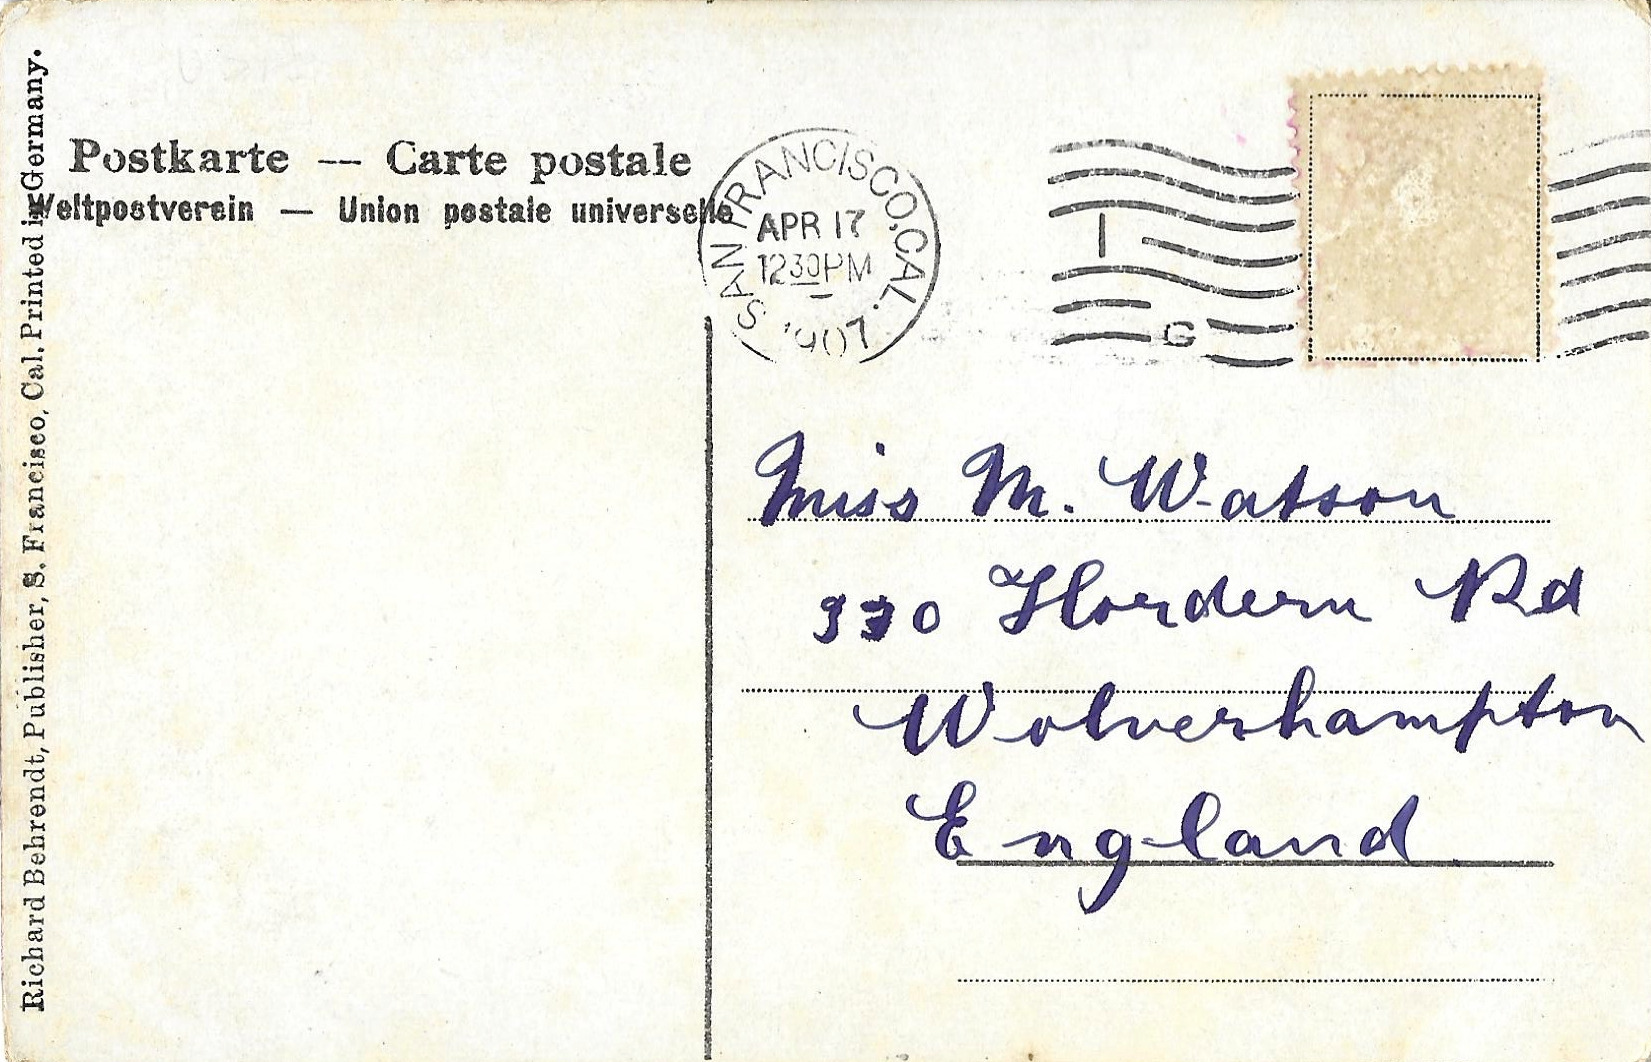 Postkarte — Carte postale
Weltpostverein — Union postale universelle
Richard Behrendt, Publisher, S. Francisco, Cal. Printed in Germany.
SAN FRANCISCO, CAL.
APR 17
12 30 PM
1907
1
G
Miss M. Watson
330 Hordern Rd
Wolverhampton
England